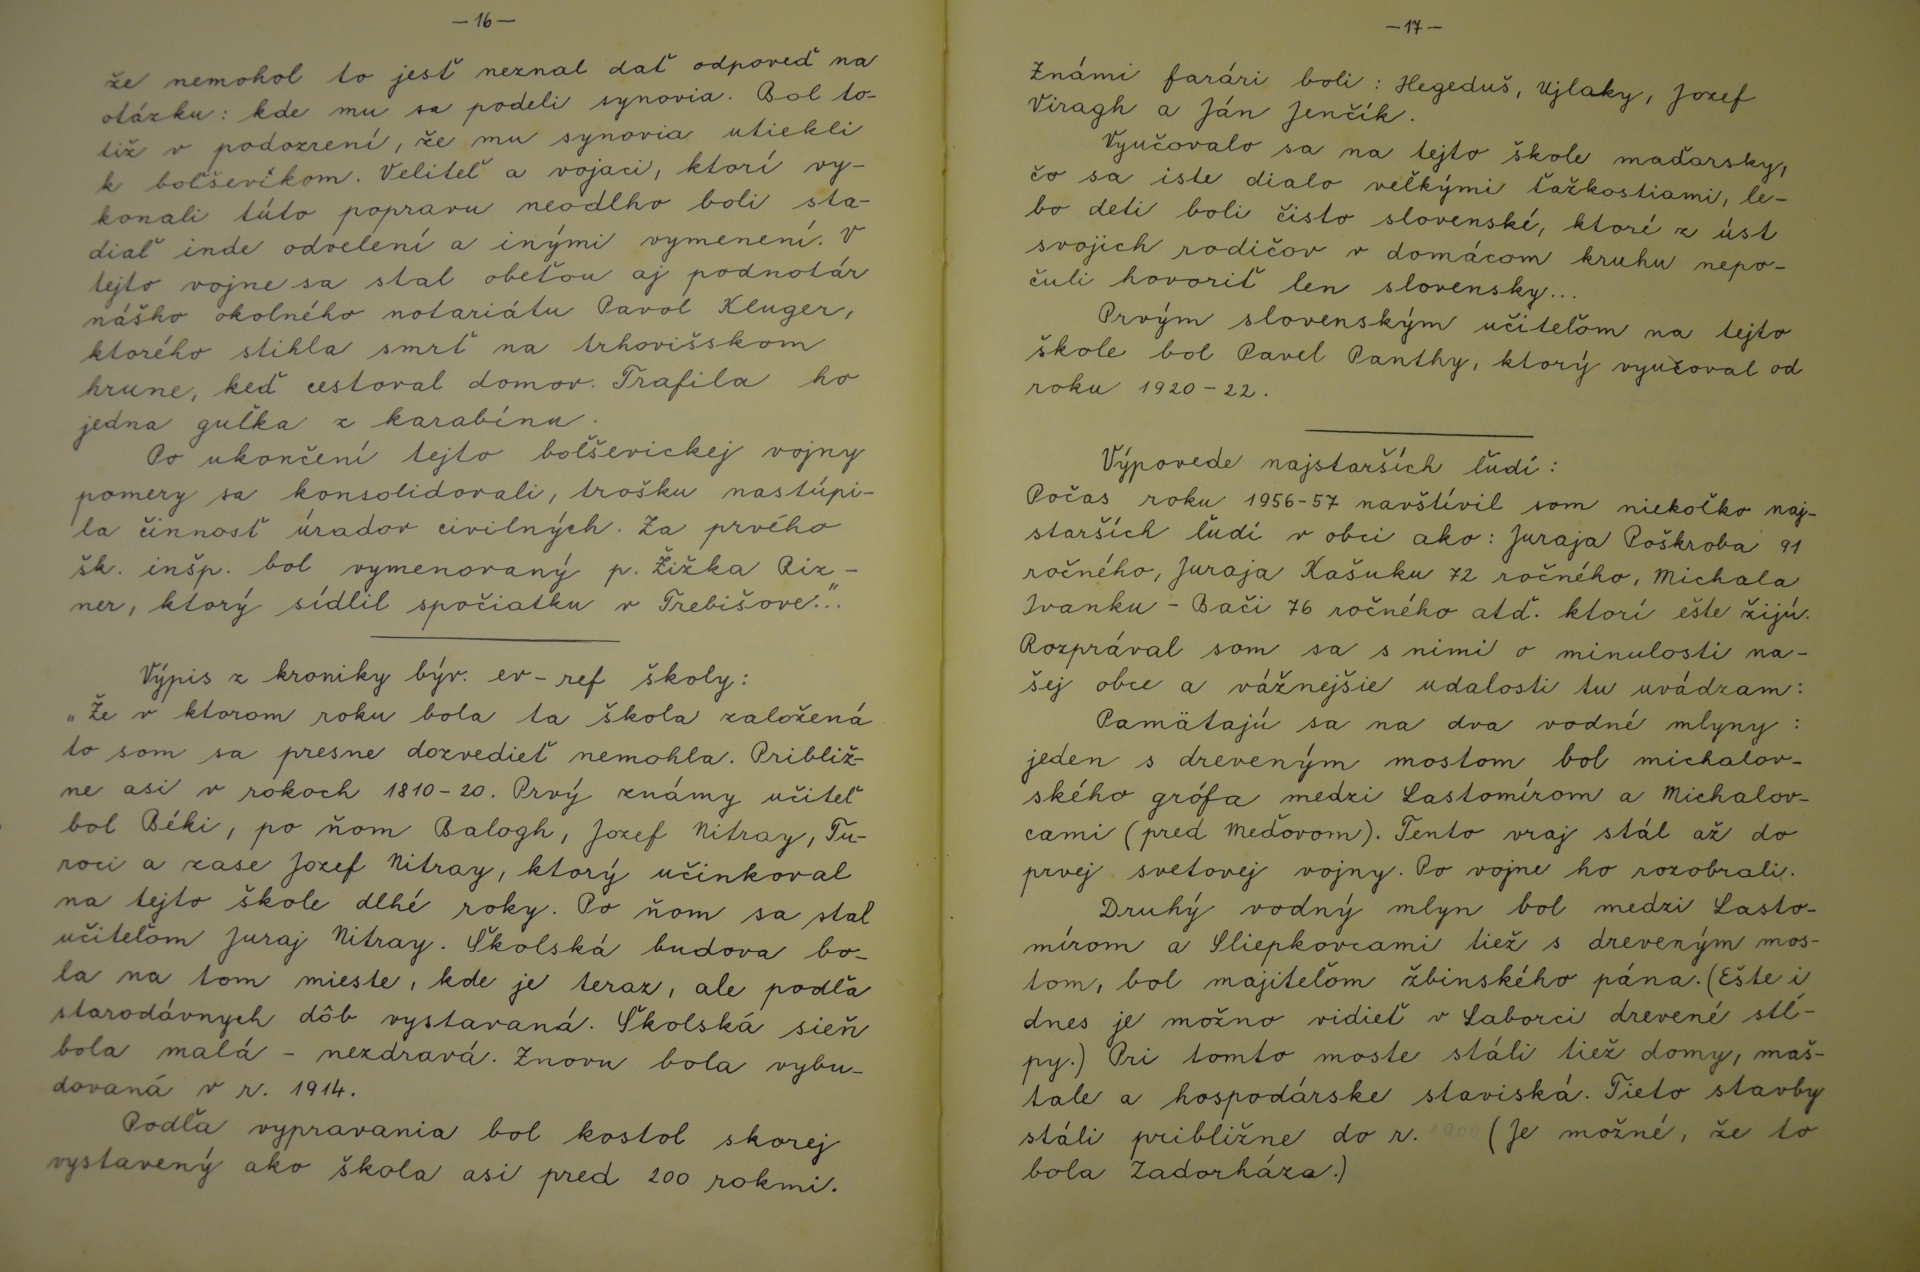 -16-
že nemohol to jesť neznal dať odpoveď na
otázku: kde mu sa podeli synovia. Bol to-
tiž v podozrení, že mu synovia utiekli
k boľševikom. Veliteľ a vojaci, ktorí vy-
konali túto popravu neodlho boli sta-
diaľ inde odvelení a inými vymenení. V
tejto vojne sa stal obeťou aj podnotár
nášho okolného notariátu Pavol Kluger,
ktorého stihla smrť na trhovišskom
hrune, keď cestoval domov. Trafila ho
jedna guľka z karabínu.
Po ukončení tejto boľševickej vojny
pomery sa konsolidovali, trošku nastúpi-
la činnosť úradov civilných. Za prvého
šk. inšp. bol vymenovaný p. Žižka Rix-
ner, ktorý sídlil spočiatku v Trebišove..."
Výpis z kroniky býv. ev-ref školy:
"Že v ktorom roku bola ta škola založená
to som sa presne dozvedieť nemohla. Približ-
ne asi v rokoch 1810-20. Prvý známy učiteľ
bol Béki, po ňom Balogh, Jozef Nitray, Tu-
roci a zase Jozef Nitray, ktorý učinkoval
na tejto škole dlhé roky. Po ňom sa stal
učiteľom Juraj Nitray. Školská budova bo-
la na tom mieste, kde je teraz, ale podľa
starodávnych dôb vystavaná. Školská sieň
bola malá - nezdravá. Znovu bola vybu-
dovaná v r. 1914.
Podľa vypravania bol kostol skorej
vystavený ako škola asi pred 200 rokmi.
-17-
Známi farári boli: Hegeduš, Ujlaky, Jozef
Viragh a Ján Jenčík.
Vyučovalo sa na tejto škole maďarsky,
čo sa iste dialo veľkými ťažkostiami, le-
bo deti boli čisto slovenské, ktoré z úst
svojich rodičov v domácom kruhu nepo-
čuli hovoriť len slovensky...
Prvým slovenským učiteľom na tejto
škole bol Pavel Panthy, ktorý vyučoval od
roku 1920-22.
Výpovede najstarších ľudí:
Počas roku 1956-57 navštívil som niekoľko naj-
starších ľudí v obci ako: Juraja Poškroba 91
ročného, Juraja Kašuku 72 ročného, Michala
Ivanku - Bači 76 ročného atď. ktorí ešte žijú.
Rozprával som sa s nimi o minulosti na-
šej obce a vážnejšie udalosti tu uvádzam:
Pamätajú sa na dva vodné mlyny:
jeden s dreveným mostom bol michalov-
ského grófa medzi Lastomírom a Michalov-
cami (pred Meďovom). Tento vraj stál až do
prvej svetovej vojny. Po vojne ho rozobrali.
Druhý vodný mlyn bol medzi Lasto-
mírom a Sliepkovcami tiež s dreveným mos-
tom, bol majiteľom žbinského pána. (Ešte i
dnes je možno vidieť v Laborci drevené stĺ-
py.) Pri tomto moste stáli tiež domy, maš-
tale a hospodárske staviská. Tieto stavby
stáli približne do r. 1900 (Je možné, že to
bola Zadorháza.)